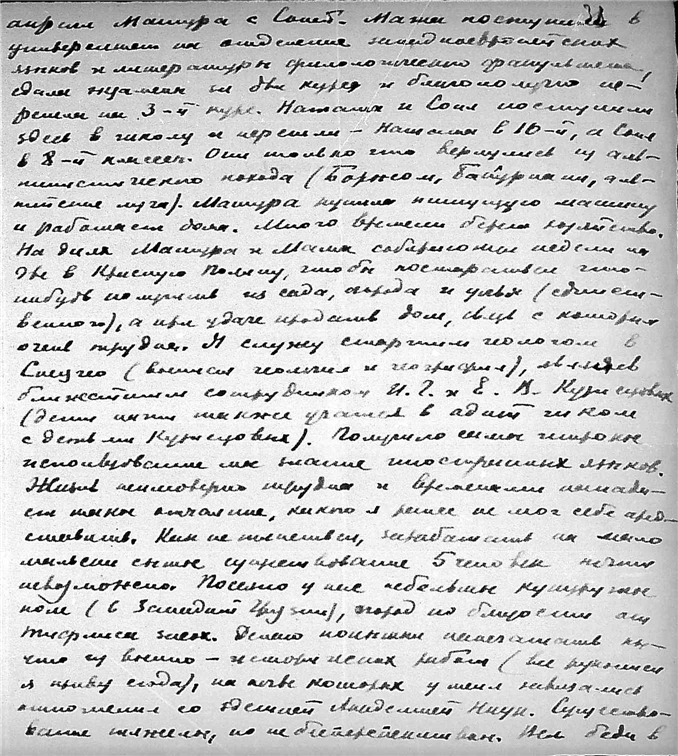 апреля Матура с Соней. Маша поступила в
университет на отделение западноевропейских
языков и литературы филологического факультета,
сдала экзамен за два курса и благополучно пе-
решла на 3-й курс. Наташа и Соня поступили
здесь в школу и перешли — Наташа в 10-й, а Соня
в 8-й классы. Они только что вернулись из аль-
пинистического похода (Боржом, Бакуриани, аль-
пийские луга). Матура купила пишущую машину
и работает дома. Много времени берет хозяйство.
На днях Матура и Маша собираются недели на
две в Красную Поляну, чтобы постараться что-
нибудь получить из сада, огорода и улья (единст-
венного), а при удаче продать дом, связь с которым
очень трудна. Я служу старшим геологом в
Спецгео (военная геология и география), являясь
ближайшим сотрудником И. Г. и Е. В. Кузнецовых
(дети наши также учатся в одной школе
с детьми Кузнецовых). Получило самое широкое
использование мое знание иностранных языков.
Жизнь неимоверно трудна и временами напада-
ет такое отчаяние, какого я ранее не мог себе пред-
ставить. Как не пытаться, заработать на мало
мальски сытое существование 5 человек почти
невозможно. Посеяно у нас небольшое кукурузное
поле (в Западной Грузии), огород по близости от
Тифлиса засох. Делаю попытки напечатать кое-
что из военно-исторических работ (все рукописи
я привез сюда), на почве которых у меня завязались
отношения со здешней Академией Наук. Существо-
вание тяжелое, но не бесперспективное. Вся беда в